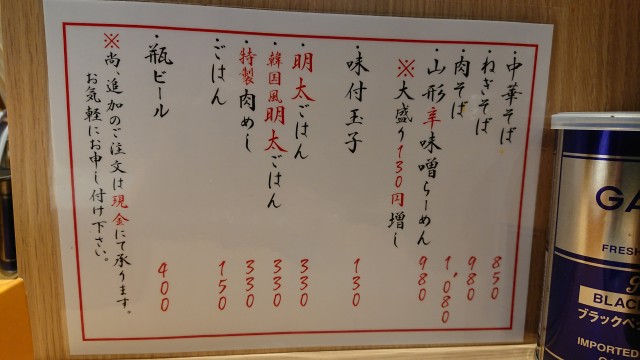 ・中華そば 850
・ねぎそば 980
・肉そば 1,080
・山形辛味噌らーめん 980
※大盛り130円増し
・味付玉子 130
・明太ごはん 330
・韓国風明太ごはん 330
・特製肉めし 330
・ごはん 150
・瓶ビール 400
※尚、追加のご注文は現金にて承ります。
お気軽にお申し付け下さい。
GA
FRESH
BLAC
ブラックペ
IMPORTED